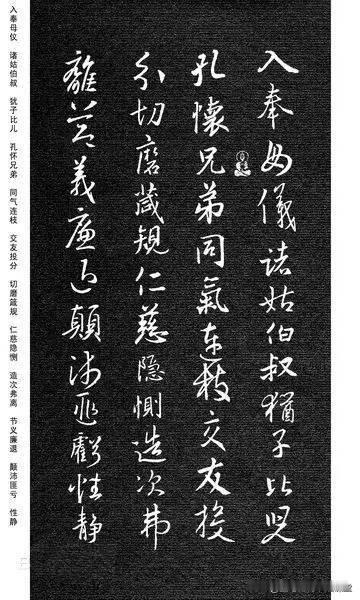 入奉母儀諸姑伯叔猶子比兒
孔懷兄弟同氣連枝交友投
分切磨箴規仁慈隐惻造次弗
離節義廉退顛沛匪虧性静
入奉母仪 诸姑伯叔 犹子比儿 孔怀兄弟 同气连枝 交友投分 切磨箴规 仁慈隐恻 造次弗离 节义廉退 颠沛匪亏 性静